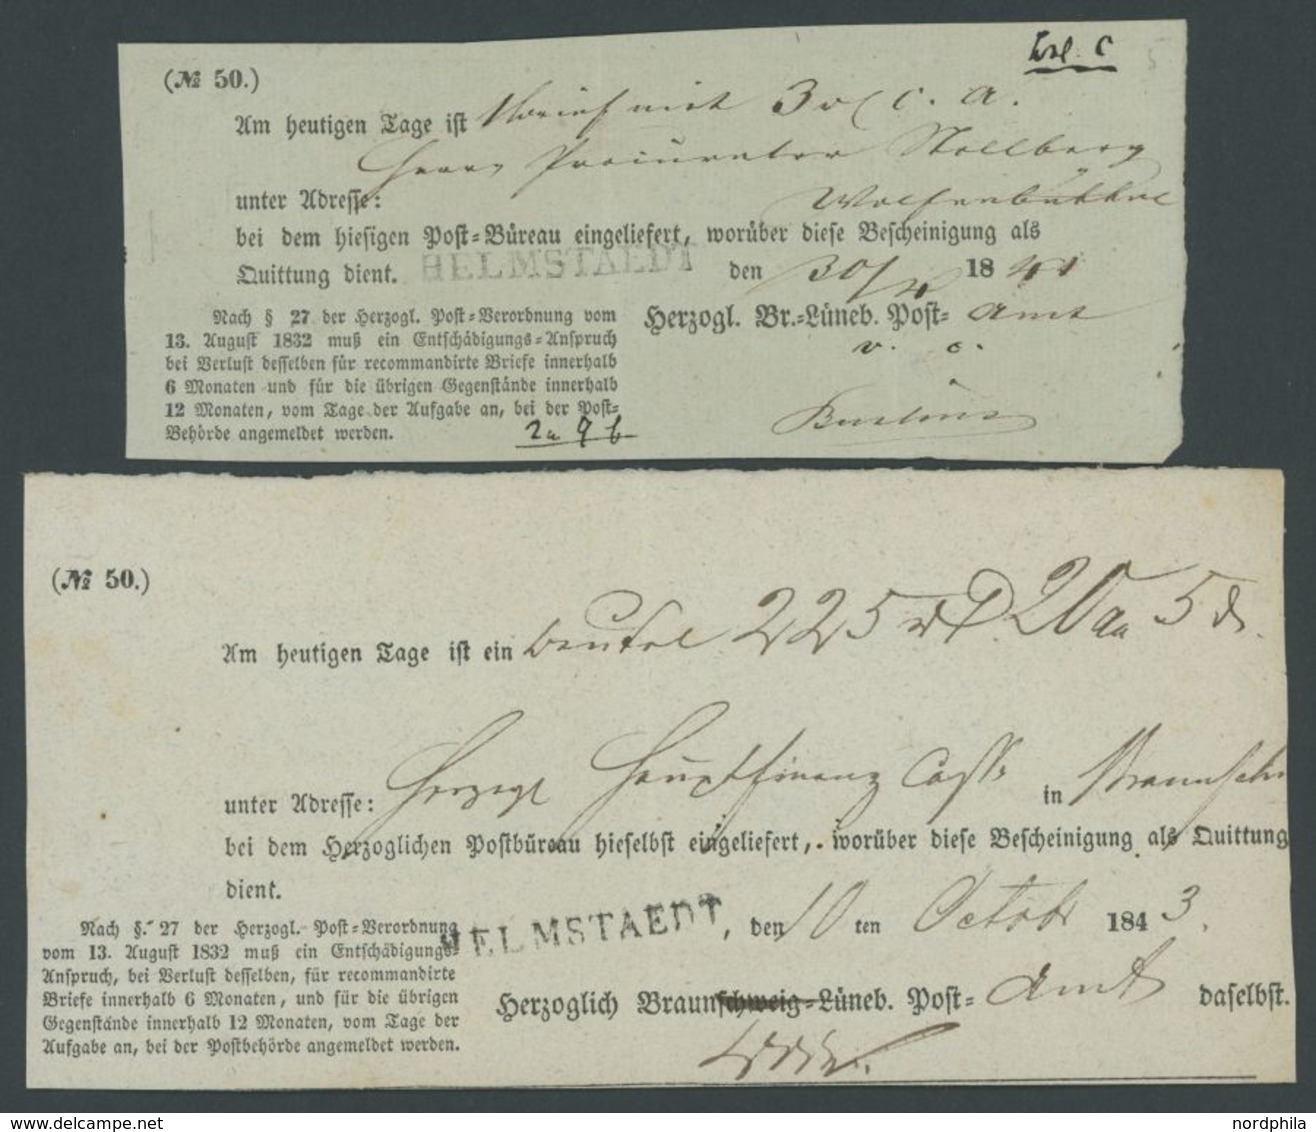 (№ 50.)
Am heutigen Tage ist Brief mit 3 c. a.
Herrn Procurator Stollberg
unter Adresse: Wolfenbüttel
bei dem hiesigen Post-Büreau eingeliefert, worüber diese Bescheinigung als
Quittung dient. HELMSTAEDT den 30/ 18 41
Nach § 27 der Herzogl. Post-Verordnung vom
13. August 1832 muß ein Entschädigungs-Anspruch
bei Verlust desselben für recommandirte Briefe innerhalb
6 Monaten und für die übrigen Gegenstände innerhalb
12 Monaten, vom Tage der Aufgabe an, bei der Post-
Behörde angemeldet werden.
Herzogl. Br.-Lüneb. Post- Amt
v. c.
(№ 50.)
Am heutigen Tage ist ein Beutel 225 20 5
unter Adresse: Herzogl Hauptfinanz Casse in Braunschw
bei dem Herzoglichen Postbüreau hieselbst eingeliefert, worüber diese Bescheinigung als Quittung
dient.
HELMSTAEDT, den 10 ten Octobr 1843.
Nach §. 27 der Herzogl. Post-Verordnung
vom 13. August 1832 muß ein Entschädigungs-
Anspruch, bei Verlust desselben, für recommandirte
Briefe innerhalb 6 Monaten, und für die übrigen
Gegenstände innerhalb 12 Monaten, vom Tage der
Aufgabe an, bei der Postbehörde angemeldet werden.
Herzoglich Braunschweig-Lüneb. Post- Amt daselbst.
www.ansichtskartenversand.com
nordphila